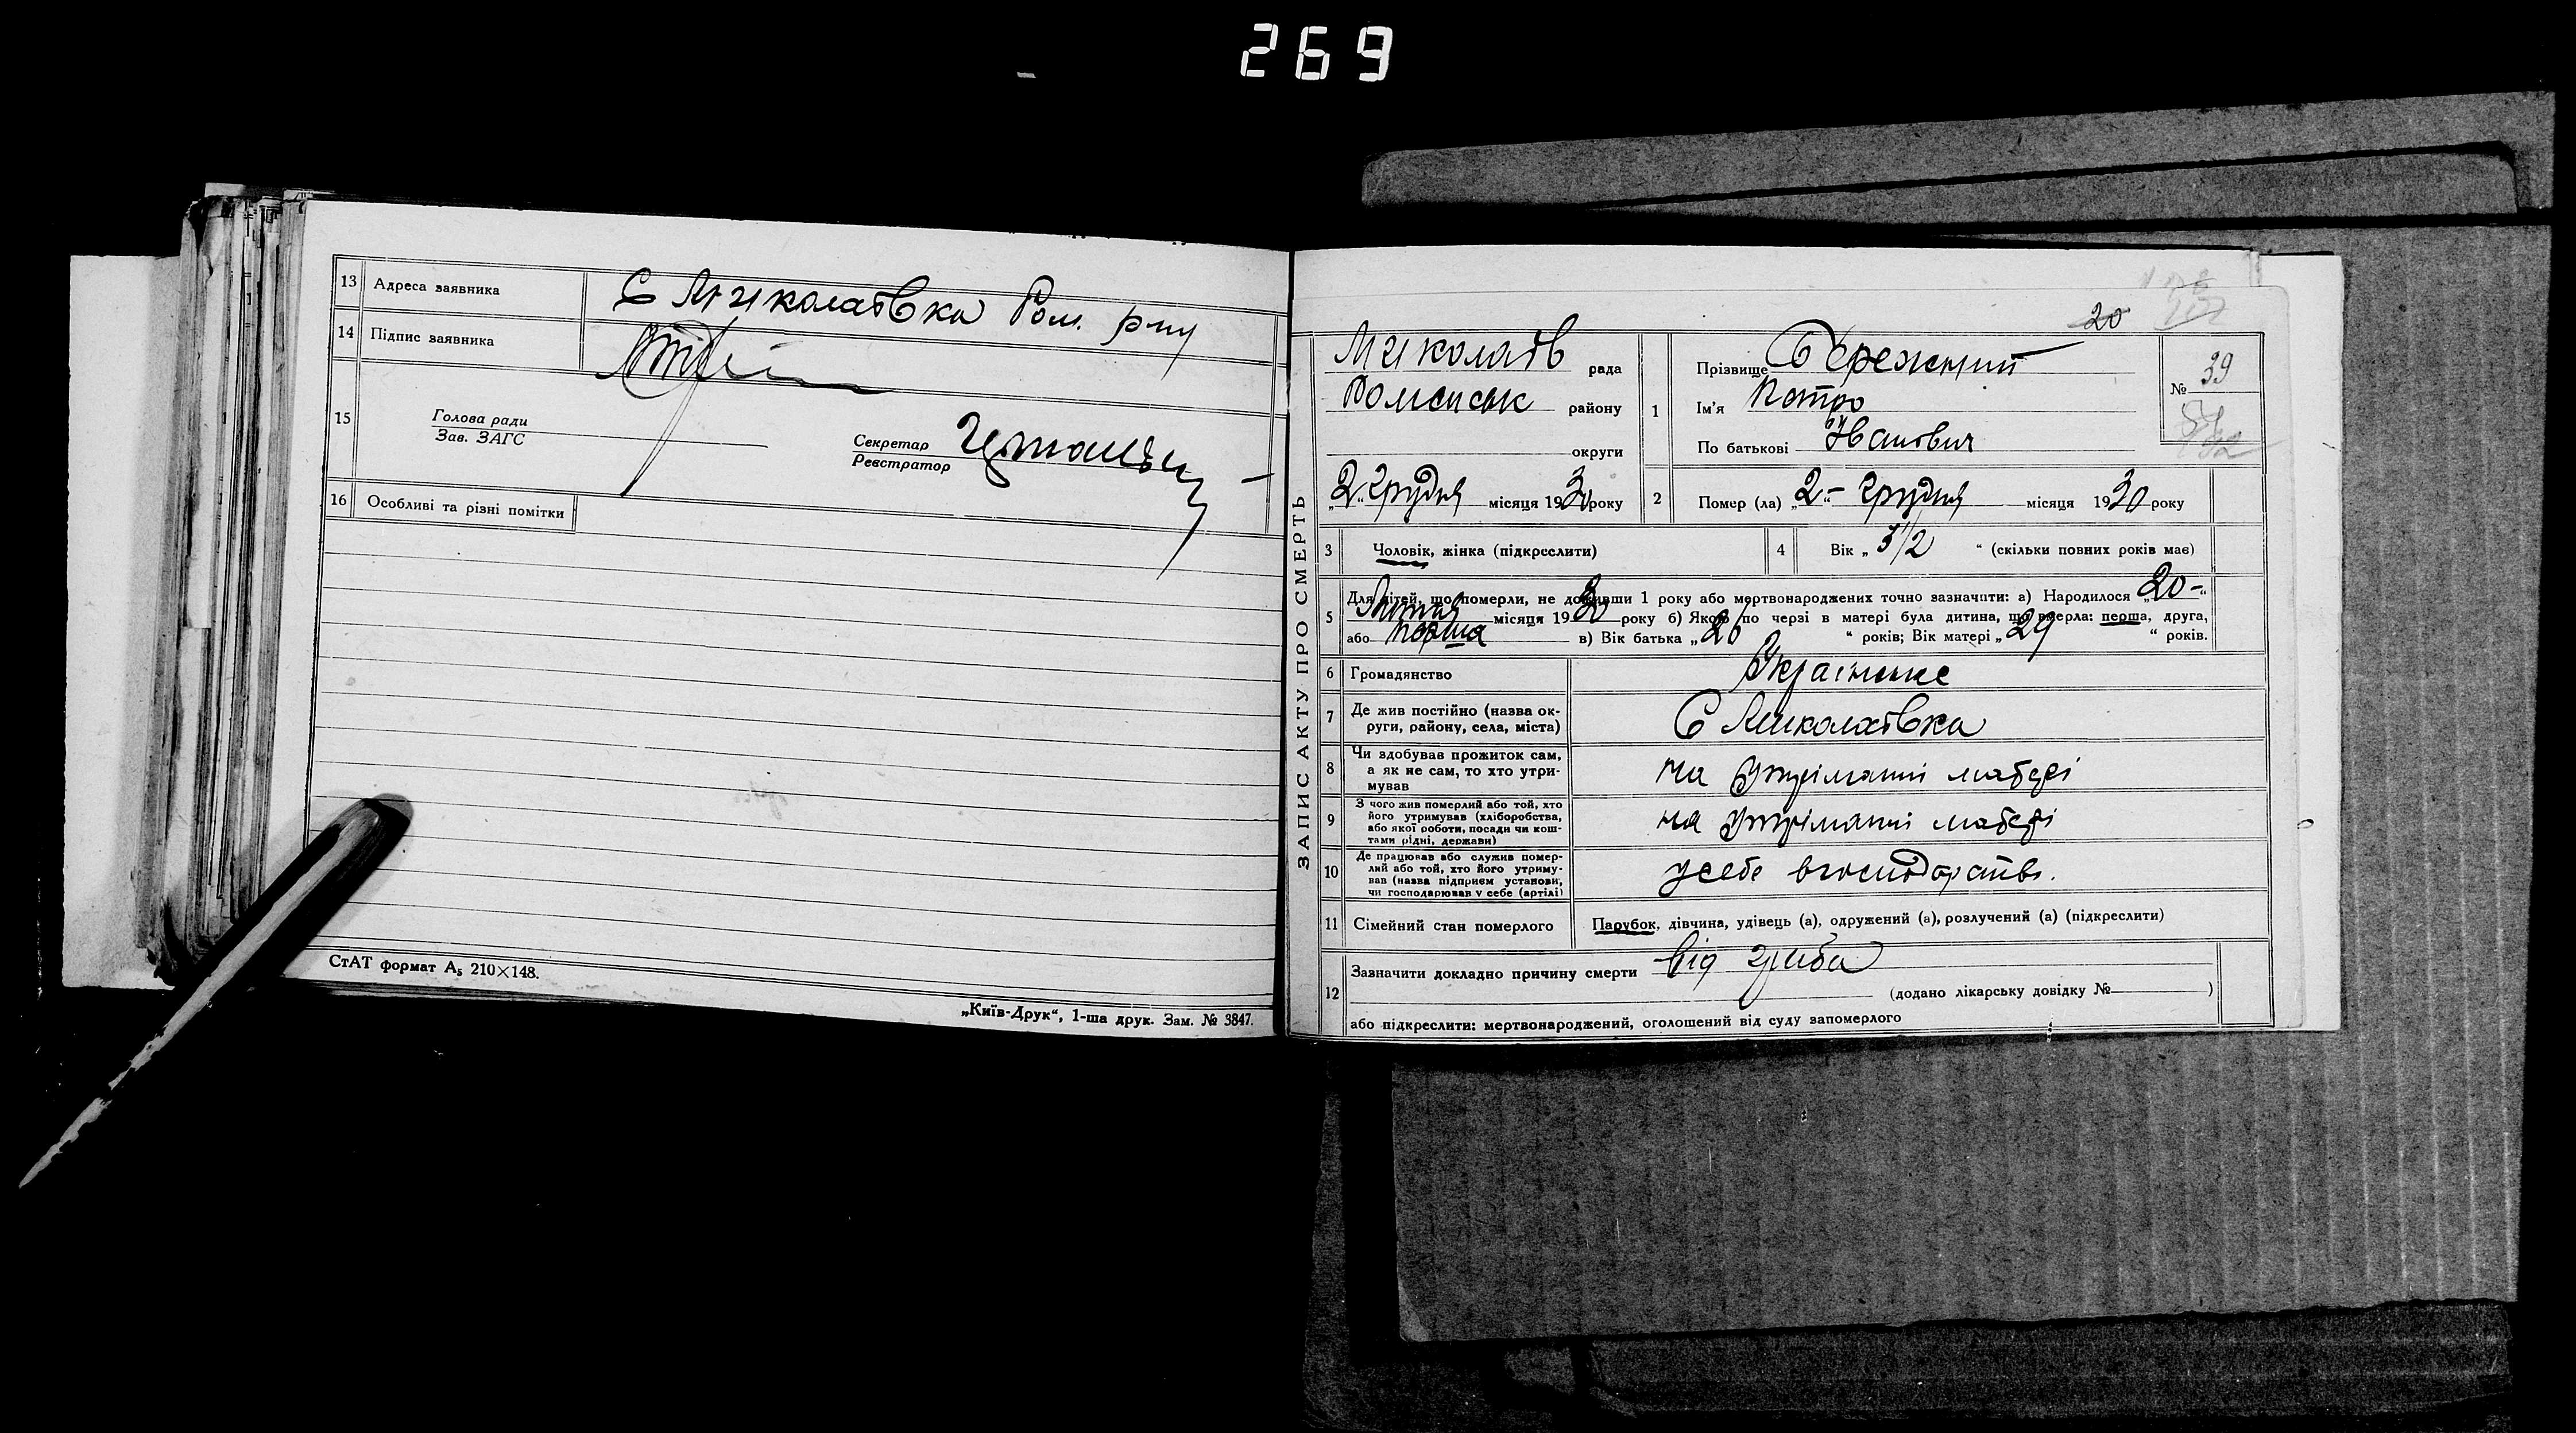 269
13 Адреса заявника С Миколаївка Ром. р-ну
14 Підпис заявника
15 Голова ради
Зав. ЗАГС
Секретар
Реєстратор
16 Особливі та різні помітки
СтАТ формат А5 210×148.
„Київ-Друк“, 1-ша друк. Зам. № 3847.
ЗАПИС АКТУ ПРО СМЕРТЬ
20
Миколаїв рада
Роменськ району
округи
„2“ грудня місяця 1930 року
1 Прізвище Бережний
Ім'я Петро
По батькові Іванович
№ 39
2 Помер (ла) „2“ грудня місяця 1930 року
3 Чоловік, жінка (підкреслити)
4 Вік „ 3 1/2 “ (скільки повних років має)
5 Для дітей, що померли, не доживши 1 року або мертвонароджених точно зазначити: а) Народилося „20“
місяця 1930 року б) Якою по черзі в матері була дитина, що вмерла: перша, друга,
або перша в) Вік батька „26“ років; Вік матері „29“ років.
6 Громадянство Українське
7 Де жив постійно (назва ок-
руги, району, села, міста) С Миколаївка
8 Чи здобував прожиток сам,
а як не сам, то хто утри-
мував на утріманні матері
9 З чого жив померлий або той, хто
його утримував (хліборобства,
або якої роботи, посади чи кош-
тами рідні, держави) на утріманні матері
10 Де працював або служив помер-
лий або той, хто його утриму-
вав (назва підприєм установи,
чи господарював у себе (артілі) усебе вгосподарстві.
11 Сімейний стан померлого Парубок, дівчина, удівець (а), одружений (а), розлучений (а) (підкреслити)
12 Зазначити докладно причину смерти від гриба
(додано лікарську довідку № )
або підкреслити: мертвонароджений, оголошений від суду запомерлого